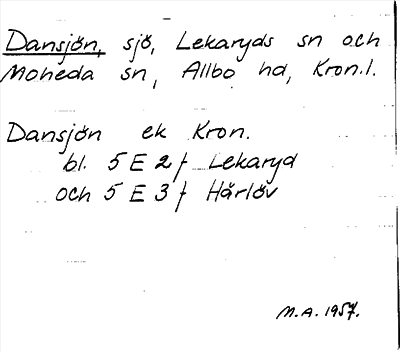 Dansjön, sjö, Lekaryds sn och
Moheda sn, Allbo hd, Kron.l.
Dansjön ek Kron.
bl. 5 E 2 f Lekaryd
och 5 E 3 f Härlöv
M.A. 1957.